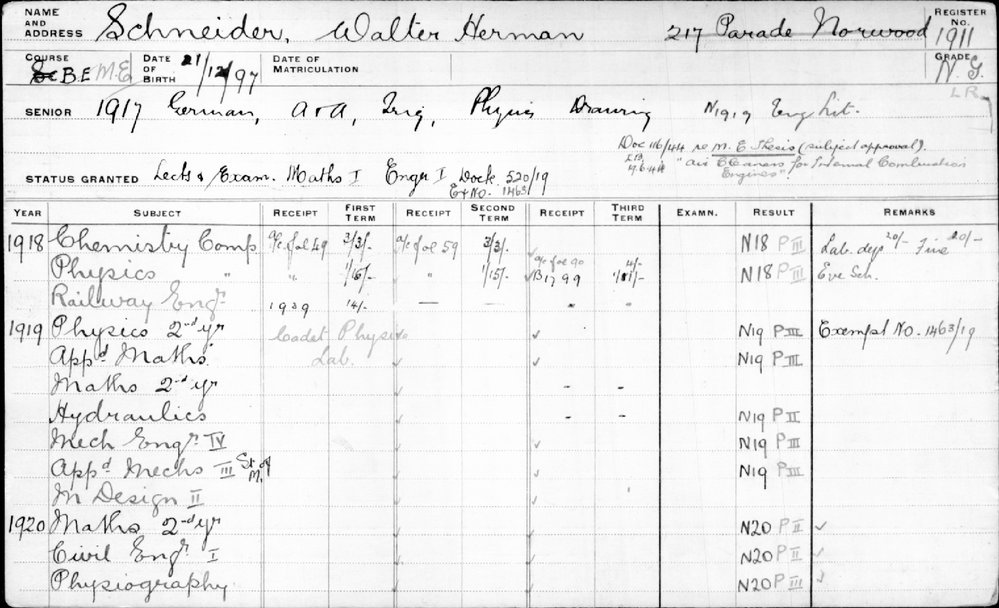 NAME AND ADDRESS Schneider, Walter Herman 217 Parade Norwood REGISTER No. 1911
COURSE BE M.E. DATE OF BIRTH 21/12/97 DATE OF MATRICULATION GRADE N.G.
L R
SENIOR 1917 German, A & A, Trig, Physics Drawing N1919 Eng Lit.
Doc 116/44 re M. E Thesis (subject approval).
"Air Cleaners for Internal Combustion
Engines"
STATUS GRANTED Lects & Exam. Maths I Engr I Dock. 520/19
Ex No. 1463/19
YEAR SUBJECT RECEIPT FIRST TERM RECEIPT SECOND TERM RECEIPT THIRD TERM EXAMN. RESULT REMARKS
1918 Chemistry Comp. a/c fol 49 3/3/- a/c fol 59 3/3/- a/c fol 90 4/- N18 P III Lab. dep 20/- Fine 20/-
Physics " " 1/16/- " 1/15/- B1799 1/11/- N18 P III Eve Sch.
Railway Engr. 1939 14/- — — " "
1919 Physics 2nd yr Cadet Physics N19 P III Exempt No. 1463/19
Appd Maths Lab. N19 P III
Maths 2nd yr - -
Hydraulics - - N19 P II
Mech Engr. IV N19 P III
Appd Mechs III St of M. N19 P III
M Design II
1920 Maths 2nd yr N20 P II ✓
Civil Engr. I N20 P II ✓
Physiography N20 P III ✓